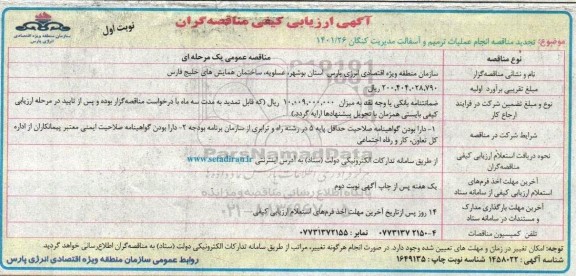 آگهی ارزیابی کیفی مناقصه‌گران
نوبت اول
سازمان منطقه ویژه اقتصادی انرژی پارس
موضوع: تجدید مناقصه انجام عملیات ترمیم و آسفالت مدیریت کنگان ۱۴۰۱/۲۶
نوع مناقصه
مناقصه عمومی یک مرحله ای
نام و نشانی مناقصه‌گزار
سازمان منطقه ویژه اقتصادی انرژی پارس استان بوشهر، عسلویه، ساختمان همایش های خلیج فارس
مبلغ تقریبی برآورد اولیه
۲۰۰,۴۰۴,۰۲۸,۷۹۰ ریال
نوع و مبلغ تضمین شرکت در فرایند ارجاع کار
ضمانتنامه بانکی یا وجه نقد به میزان ۱۰,۰۰۹,۰۰۰,۰۰۰ ریال (که قابل تمدید به مدت سه ماه با درخواست مناقصه‌گزار بوده و پس از تایید در مرحله ارزیابی کیفی بایستی همزمان با تحویل پیشنهادها ارایه گردد.)
شرایط شرکت در مناقصه
۱- دارا بودن گواهینامه صلاحیت حداقل پایه ۵ در رشته راه و ترابری از سازمان برنامه بودجه ۲- دارا بودن گواهینامه صلاحیت ایمنی معتبر پیمانکاران از اداره کل تعاون، کار و رفاه اجتماعی
نحوه دریافت استعلام ارزیابی کیفی مناقصه‌گران
از طریق سامانه تدارکات الکترونیکی دولت (ستاد) به آدرس اینترنتی www.setadiran.ir
آخرین مهلت اخذ فرم‌های استعلام ارزیابی کیفی از سامانه ستاد
یک هفته پس از چاپ آگهی نوبت دوم
آخرین مهلت بارگذاری مدارک و مستندات در سامانه ستاد
۱۴ روز پس ازتاریخ آخرین مهلت اخذ فرم‌های استعلام ارزیابی کیفی
تلفن کمیسیون مناقصات
۰۷۷۳۱۳۷ ۲۱۵۰-۴ نمابر : ۰۷۷۳۱۳۷۲۱۵۵
توجه: امکان تغییر در زمان و مهلت های تعیین شده وجود دارد. در صورت انجام هرگونه تغییر، مراتب از طریق سامانه تدارکات الکترونیکی دولت (ستاد) به مناقصه‌گران اطلاع‌رسانی خواهد گردید.
شناسه آگهی: ۱۴۵۸۰۲۲ شناسه چاپ: ۱۶۴۹۱۳۵
روابط عمومی سازمان منطقه ویژه اقتصادی انرژی پارس